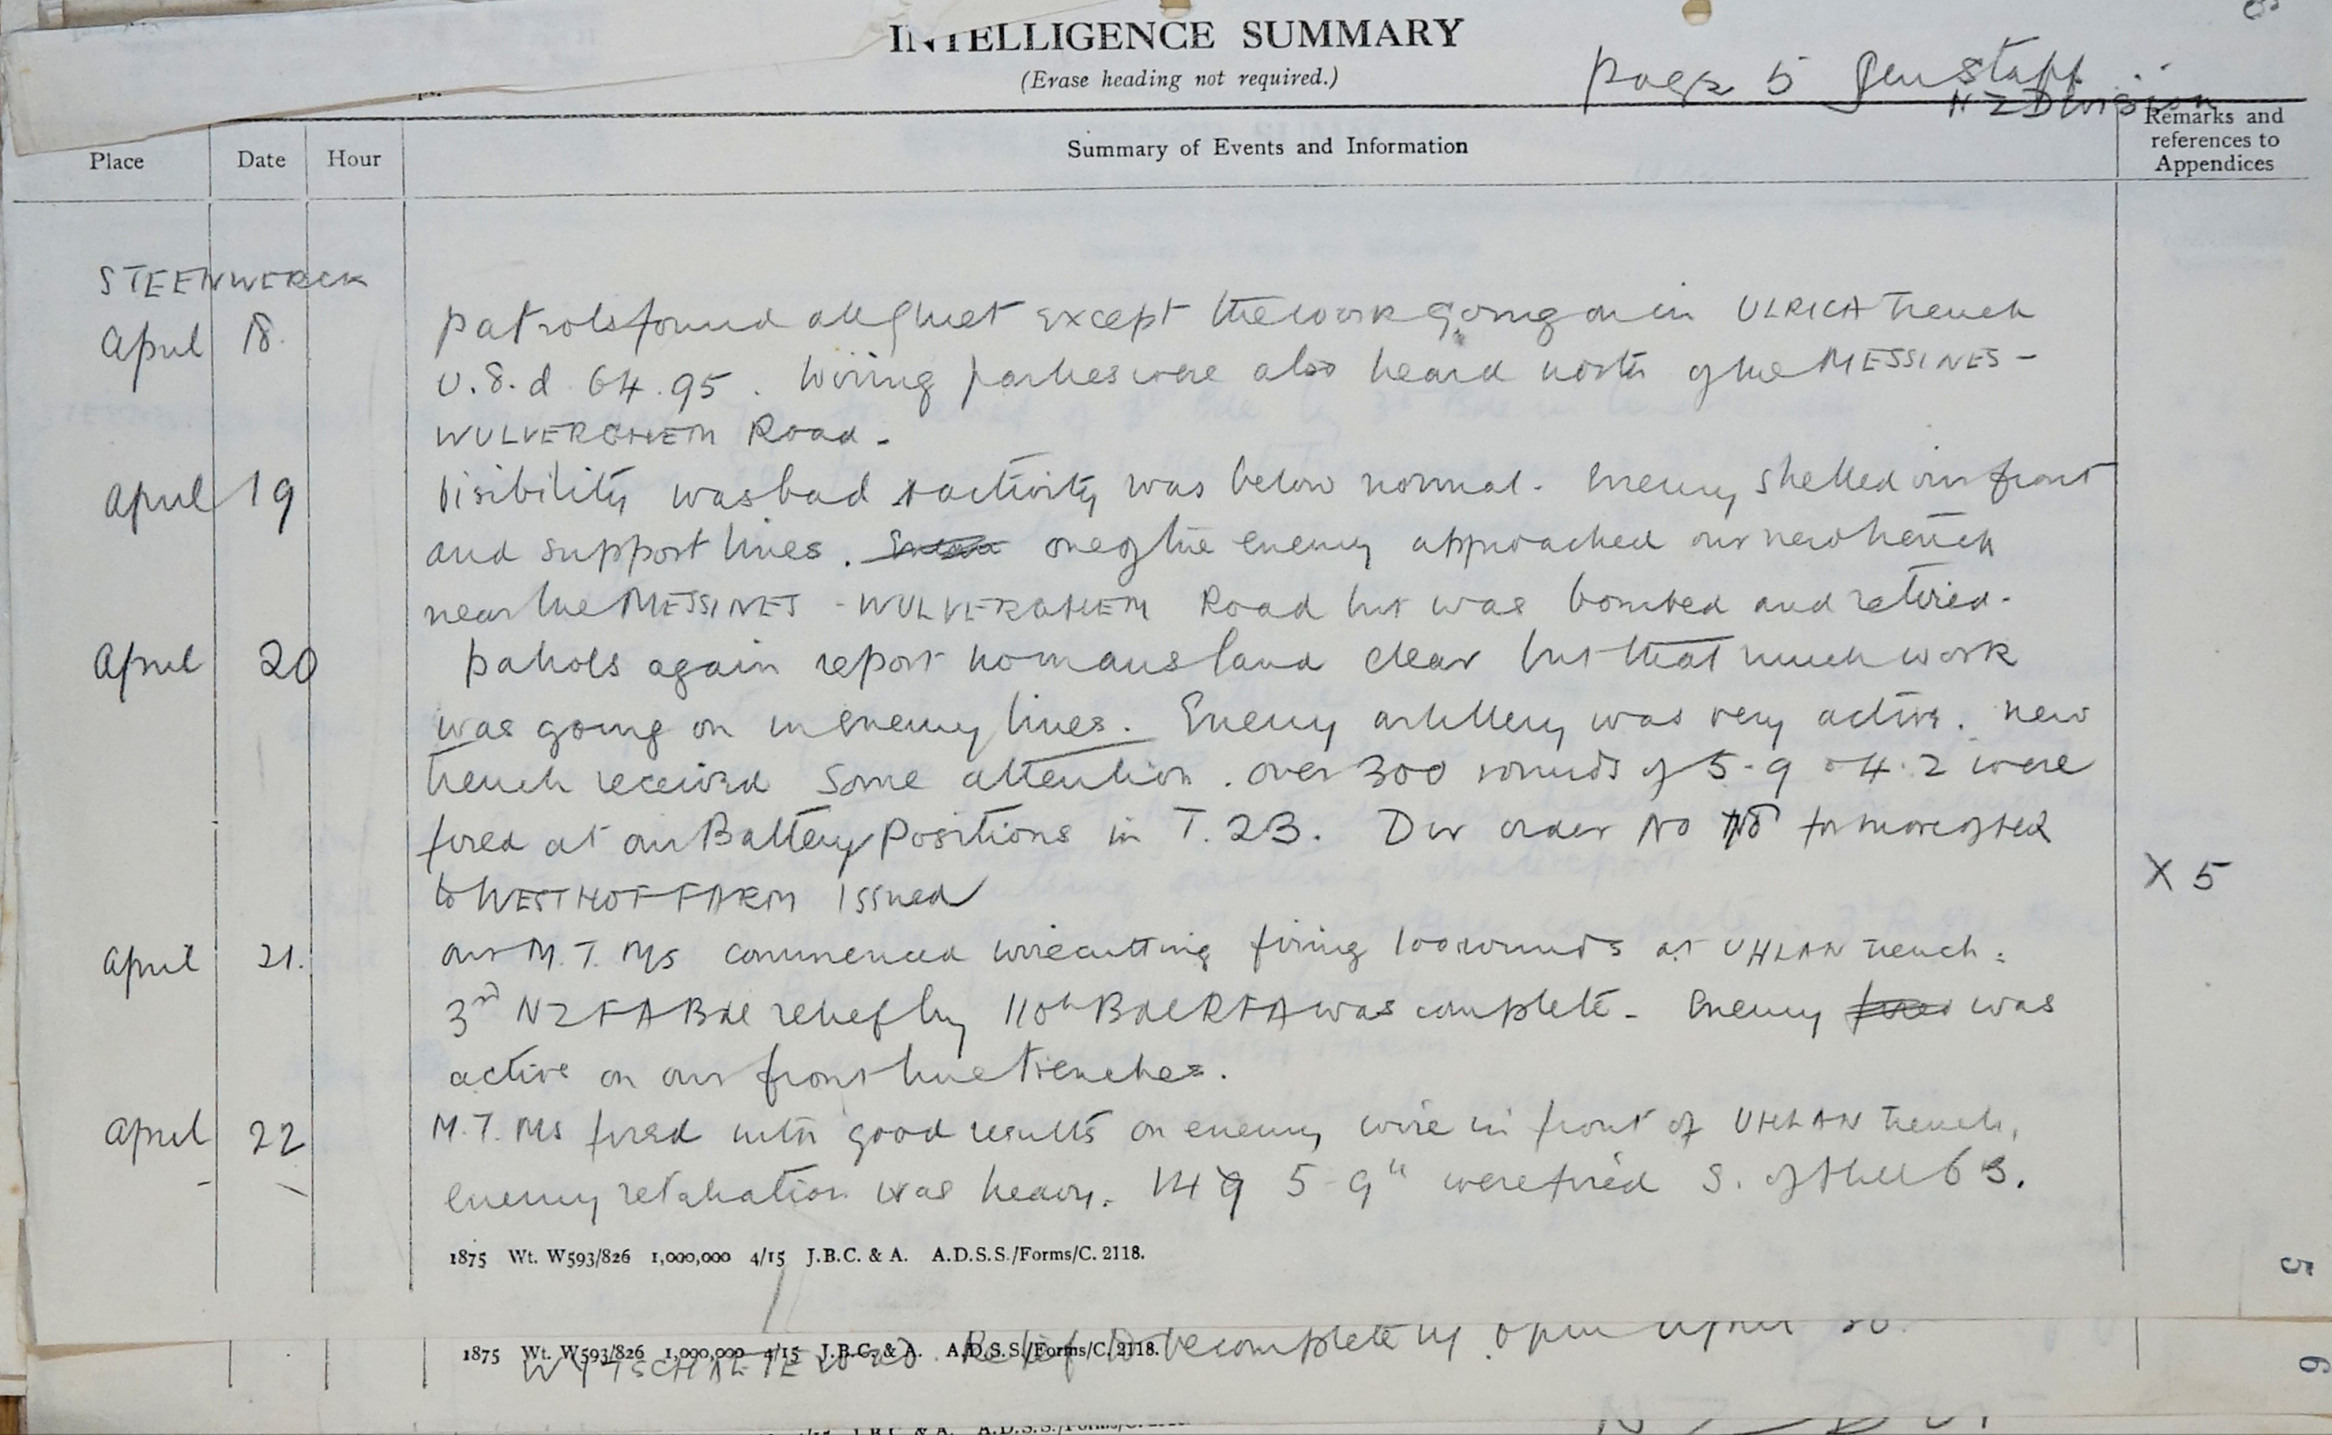 INTELLIGENCE SUMMARY
(Erase heading not required.)
page 5 Gen Staff
N Z Division
Place Date Hour Summary of Events and Information Remarks and references to Appendices
STEENWERCK
April 18. patrols found all quiet except the work going on in ULRICA Trench
U.8.d 64.95. Wiring parties were also heard north of the MESSINES-
WULVERGHEM Road-
April 19 Visibility was bad & activity was below normal. Enemy shelled our front
and support lines. one of the enemy approached our new trench
near the MESSINES-WULVERGHEM Road but was bombed and retired.
April 20 patrols again report no mans land clear but that much work
was going on in enemy lines. Enemy artillery was very active. new
trench received some attention. over 300 rounds of 5.9 & 4.2 were
fired at our Battery positions in T.23. Div order No for move of HQ
to WESTHOF FARM issued X 5
April 21. our M.T.Ms commenced wirecutting firing 100 rounds at UHLAN trench.
3rd NZFA Bde relief by 110th Bde RFA was complete. Enemy was
active on our front line trenches.
April 22 M.T.Ms fired with good results on enemy wire in front of UHLAN trench,
enemy retaliation was heavy. 5-9" were fired S. of Hill 63.
1875 Wt. W593/826 1,000,000 4/15 J.B.C. & A. A.D.S.S./Forms/C. 2118.
5
Relief to be complete by April 30.
1875 Wt. W593/826 1,000,000 4/15 J.B.C. & A. A.D.S.S./Forms/C. 2118.
WYTSCHAETE
6